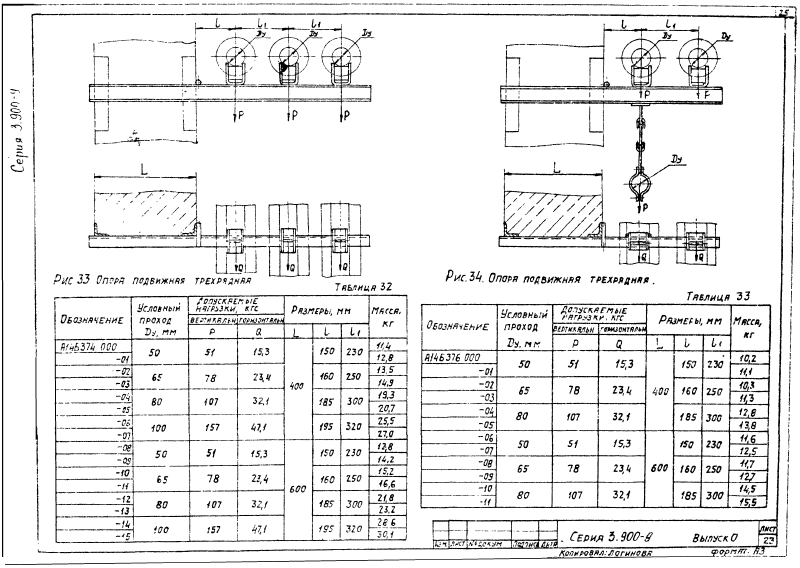 25
Серия 3.900-9
l l1
Ду Ду Ду
P P P
L
Q Q Q
l l1
Ду Ду
P P
Ду
P
L
Q Q
Рис 33 Опора подвижная трехрядная
Таблица 32
Обозначение Условный проход Ду, мм Допускаемые нагрузки, кгс Размеры, мм Масса, кг
вертикальн горизонтальн
P Q L l l1
А14Б374 000 50 51 15,3 400 150 230 11,4
-01 12,8
-02 65 78 23,4 160 250 13,5
-03 14,9
-04 80 107 32,1 185 300 19,3
-05 20,7
-06 100 157 47,1 195 320 25,5
-07 27,0
-08 50 51 15,3 600 150 230 12,8
-09 14,2
-10 65 78 23,4 160 250 15,2
-11 16,6
-12 80 107 32,1 185 300 21,8
-13 23,2
-14 100 157 47,1 195 320 28,6
-15 30,1
Рис. 34. Опора подвижная трехрядная.
Таблица 33
Обозначение Условный проход Ду, мм Допускаемые нагрузки, кгс Размеры, мм Масса, кг
вертикальн горизонтальн
P Q L l l1
А14Б376 000 50 51 15,3 400 150 230 10,2
-01 11,1
-02 65 78 23,4 160 250 10,3
-03 11,3
-04 80 107 32,1 185 300 12,8
-05 13,8
-06 50 51 15,3 600 150 230 11,6
-07 12,5
-08 65 78 23,4 160 250 11,7
-09 12,7
-10 80 107 32,1 185 300 14,5
-11 15,5
Изм Лист № докум Подпись Дата
Серия 3.900-9 Выпуск 0
Лист
23
Копировал: Логинова формат. А3